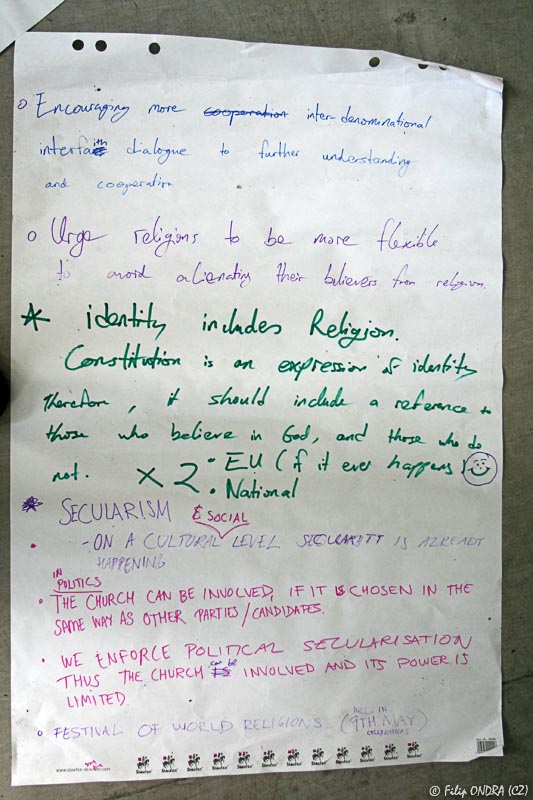 o Encouraging more cooperation inter-denominational
interfaith dialogue to further understanding
and cooperation
o Urge religions to be more flexible
to avoid alienating their believers from religion.
* identity includes Religion.
Constitution is an expression of identity
therefore, it should include a reference to
those who believe in God, and those who do
not. x 2 • EU (if it ever happens!
• National
* SECULARISM & SOCIAL
- ON A CULTURAL LEVEL SECULARITY IS ALREADY
HAPPENING
IN
POLITICS
• THE CHURCH CAN BE INVOLVED, IF IT IS CHOSEN IN THE
SAME WAY AS OTHER PARTIES/CANDIDATES.
• WE ENFORCE POLITICAL SECULARISATION
THUS THE CHURCH can be INVOLVED AND ITS POWER IS
LIMITED
o FESTIVAL OF WORLD RELIGIONS (INCL. IN
9TH MAY)
CELEBRATIONS
Staufen Staufen Staufen Staufen Staufen Staufen Staufen Staufen Staufen Staufen Staufen
© Filip ONDRA (CZ)